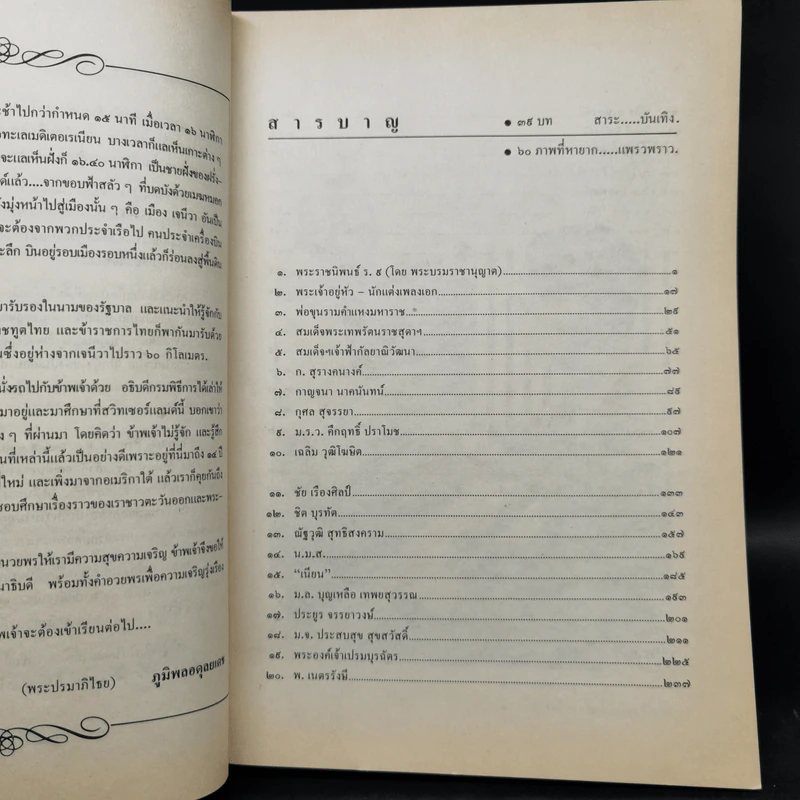 ช้าไปกว่ากำหนด ๑๕ นาที เมื่อเวลา ๑๖ นาฬิกา
ทะเลเมดิเตอเรเนียน บางเวลาก็แลเห็นเกาะต่าง ๆ
จะแลเห็นฝั่งก็ ๑๖.๔๐ นาฬิกา เป็นชายฝั่งของฝรั่ง-
แล้ว....จากขอบฟ้าสลัว ๆ ที่บดบังด้วยเมฆหมอก
มุ่งหน้าไปสู่เมืองนั้น ๆ คือ เมือง เจนีวา อันเป็น
จะต้องจากพวกประจำเรือไป คนประจำเครื่องบิน
ะลึก บินอยู่รอบเมืองรอบหนึ่งแล้วก็ร่อนลงสู่พื้นดิน
มารับรองในนามของรัฐบาล และแนะนำให้รู้จักกับ
ชทูตไทย และข้าราชการไทยก็พากันมารับด้วย
นซึ่งอยู่ห่างจากเจนีวาไปราว ๖๐ กิโลเมตร.
นั่งรถไปกับข้าพเจ้าด้วย อธิบดีกรมพิธีการได้เล่าให้
มาอยู่และมาศึกษาที่สวิทเซอร์แลนด์นี้ บอกเขาว่า
ง ๆ ที่ผ่านมา โดยคิดว่า ข้าพเจ้าไม่รู้จัก และรู้สึก
นที่เหล่านี้แล้วเป็นอย่างดีเพราะอยู่ที่นี่มาถึง ๑๔ ปี
ใหม่ และเพิ่งมาจากอเมริกาใต้ แล้วเราก็คุยกันถึง
ชอบศึกษาเรื่องราวของเราชาวตะวันออกและพระ-
นวยพรให้เรามีความสุขความเจริญ ข้าพเจ้าจึงขอให้
นาธิบดี พร้อมทั้งคำอวยพรเพื่อความเจริญรุ่งเรือง
พเจ้าจะต้องเข้าเรียนต่อไป....
ภูมิพลอดุลยเดช
(พระปรมาภิไธย)
สารบาญ ● ๓๙ บท สาระ.....บันเทิง.
● ๖๐ ภาพที่หายาก.....แพรวพราว.
๑. พระราชนิพนธ์ ร. ๙ (โดย พระบรมราชานุญาต)........๑
๒. พระเจ้าอยู่หัว – นักแต่งเพลงเอก........๑๗
๓. พ่อขุนรามคำแหงมหาราช........๒๙
๔. สมเด็จพระเทพรัตนราชสุดาฯ........๕๑
๕. สมเด็จฯเจ้าฟ้ากัลยาณิวัฒนา........๖๕
๖. ก. สุรางคนางค์........๗๗
๗. กาญจนา นาคนันทน์........๘๙
๘. กุศล สุจรรยา........๙๗
๙. ม.ร.ว. คึกฤทธิ์ ปราโมช........๑๐๗
๑๐. เฉลิม วุฒิโฆษิต........๑๒๑
๑๑. ชัย เรืองศิลป์........๑๓๓
๑๒. ชิต บุรทัต........๑๔๓
๑๓. ณัฐวุฒิ สุทธิสงคราม........๑๕๗
๑๔. น.ม.ส.........๑๖๙
๑๕. “เนียน”........๑๘๕
๑๖. ม.ล. บุญเหลือ เทพยสุวรรณ........๑๙๓
๑๗. ประยูร จรรยาวงษ์........๒๐๑
๑๘. ม.จ. ประสบสุข สุขสวัสดิ์........๒๑๑
๑๙. พระองค์เจ้าเปรมบุรฉัตร........๒๒๕
๒๐. พ. เนตรรังษี........๒๓๗